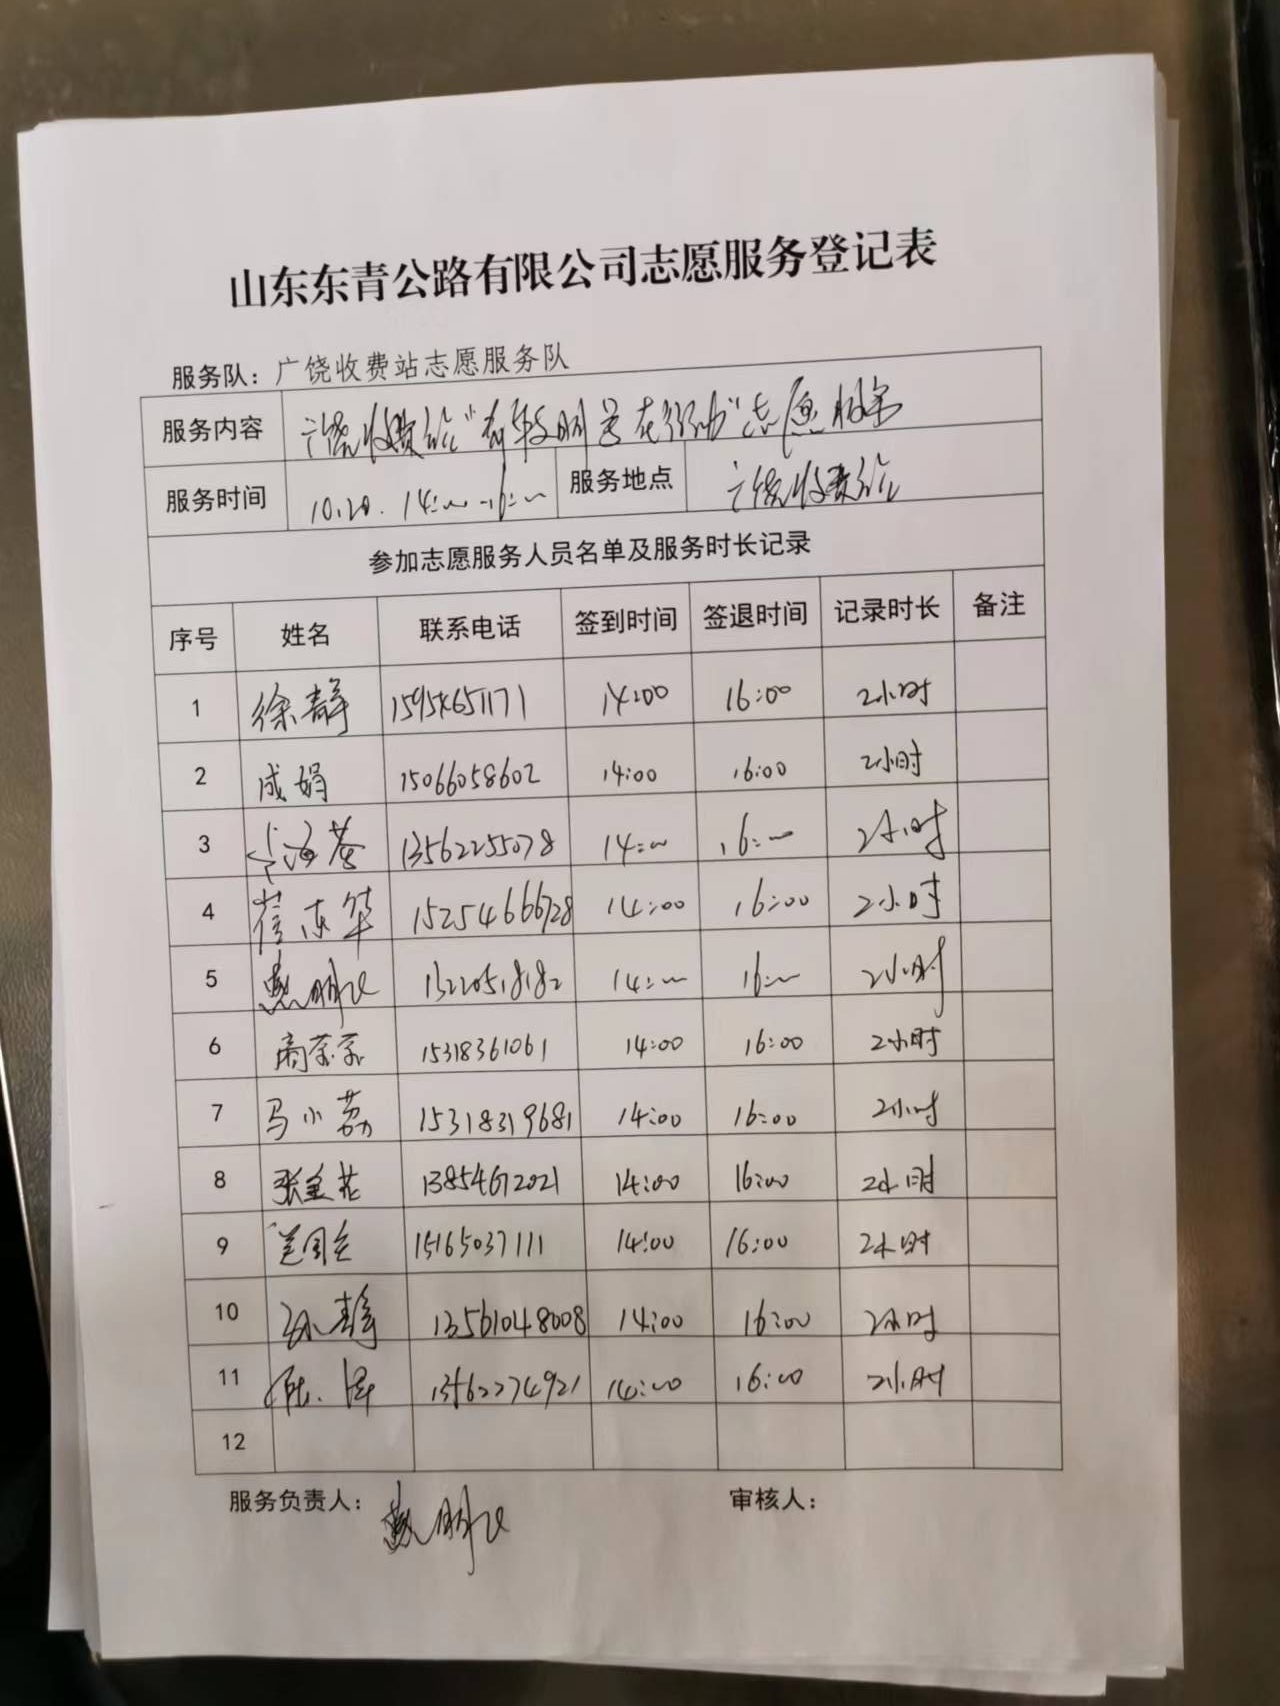 山东东青公路有限公司志愿服务登记表
服务队：广饶收费站志愿服务队
服务内容 广饶收费站“ 在行动”志愿服务
服务时间 10.20. 14:00-16:00 服务地点 广饶收费站
参加志愿服务人员名单及服务时长记录
序号 姓名 联系电话 签到时间 签退时间 记录时长 备注
1 徐静 15954651171 14:00 16:00 2小时
2 成娟 15066058602 14:00 16:00 2小时
3 13562255078 14:00 16:00 2小时
4 东华 15254666728 14:00 16:00 2小时
5 13220518182 14:00 16:00 2小时
6 15318361061 14:00 16:00 2小时
7 马小荔 15318319681 14:00 16:00 2小时
8 张金花 13854672021 14:00 16:00 2小时
9 15165037111 14:00 16:00 2小时
10 孙静 13561048008 14:00 16:00 2小时
11 13562274921 14:00 16:00 2小时
12
服务负责人： 审核人：